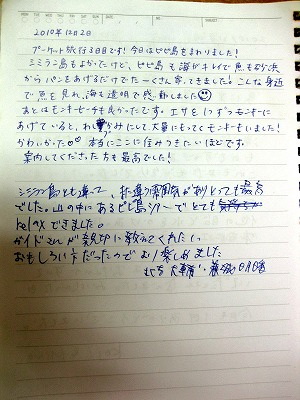 2010年12月2日
プーケット旅行3日目です!今日はピピ島をまわりました!
シミラン島もよかったけど、ピピ島も海がキレイで魚も砂浜
からパンをあげるだけでたーくさん寄ってきました!こんな身近
で魚を見れ、海も透明で感動しました
あとはモンキービーチも良かったです。エサを1つずつモンキーに
あげていると、わしづかみにして大量にもってくモンキーもいました!
かわいかった 本当にここに住みつきたいほどです。
案内してくださった方も最高でした!
シミラン島とも違って、また違う雰囲気がありとっても最高
でした。山の中にあるピピ島ツアーでとても
relaxできました。
ガイドさんが親切に教えてくれたし、
おもしろい方だったのでより楽しめました